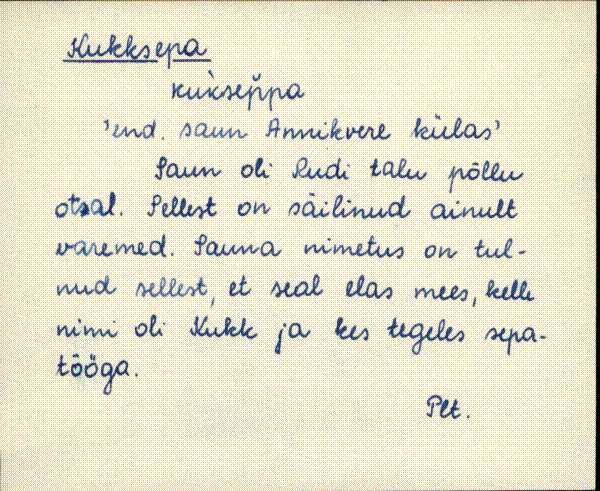 Kukksepa
kuk̀sep̆pa
'end. saun Annikvere külas'
Saun oli Rudi talu põllu
otsal. Sellest on säilinud ainult
varemed. Sauna nimetus on tul-
nud sellest, et seal elas mees, kelle
nimi oli Kukk ja kes tegeles sepa-
tööga.
Plt.